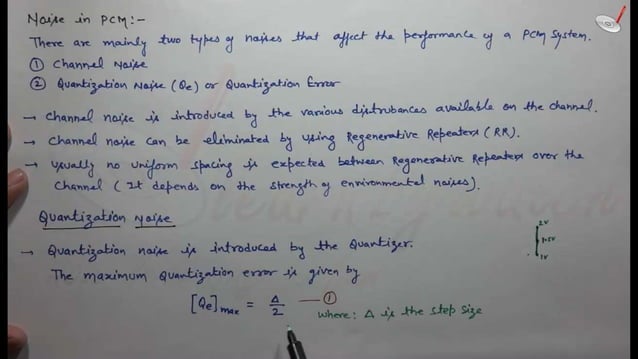 Noise in PCM:-
There are mainly two types of noises that affect the performance of a PCM system.
① Channel Noise
② Quantization Noise (Qe) or Quantization Error
→ Channel noise is introduced by the various distrubances available on the channel.
→ Channel noise can be eliminated by using Regenerative Repeaters (RR).
→ Usually no uniform spacing is expected between Regenerative Repeaters over the
Channel (It depends on the strength of environmental noises).
Quantization Noise
→ Quantization noise is introduced by the Quantizer.
2V
1.5V
1V
The maximum Quantization error is given by
[Qe]max = Δ/2 —— ①
where: Δ is the step size